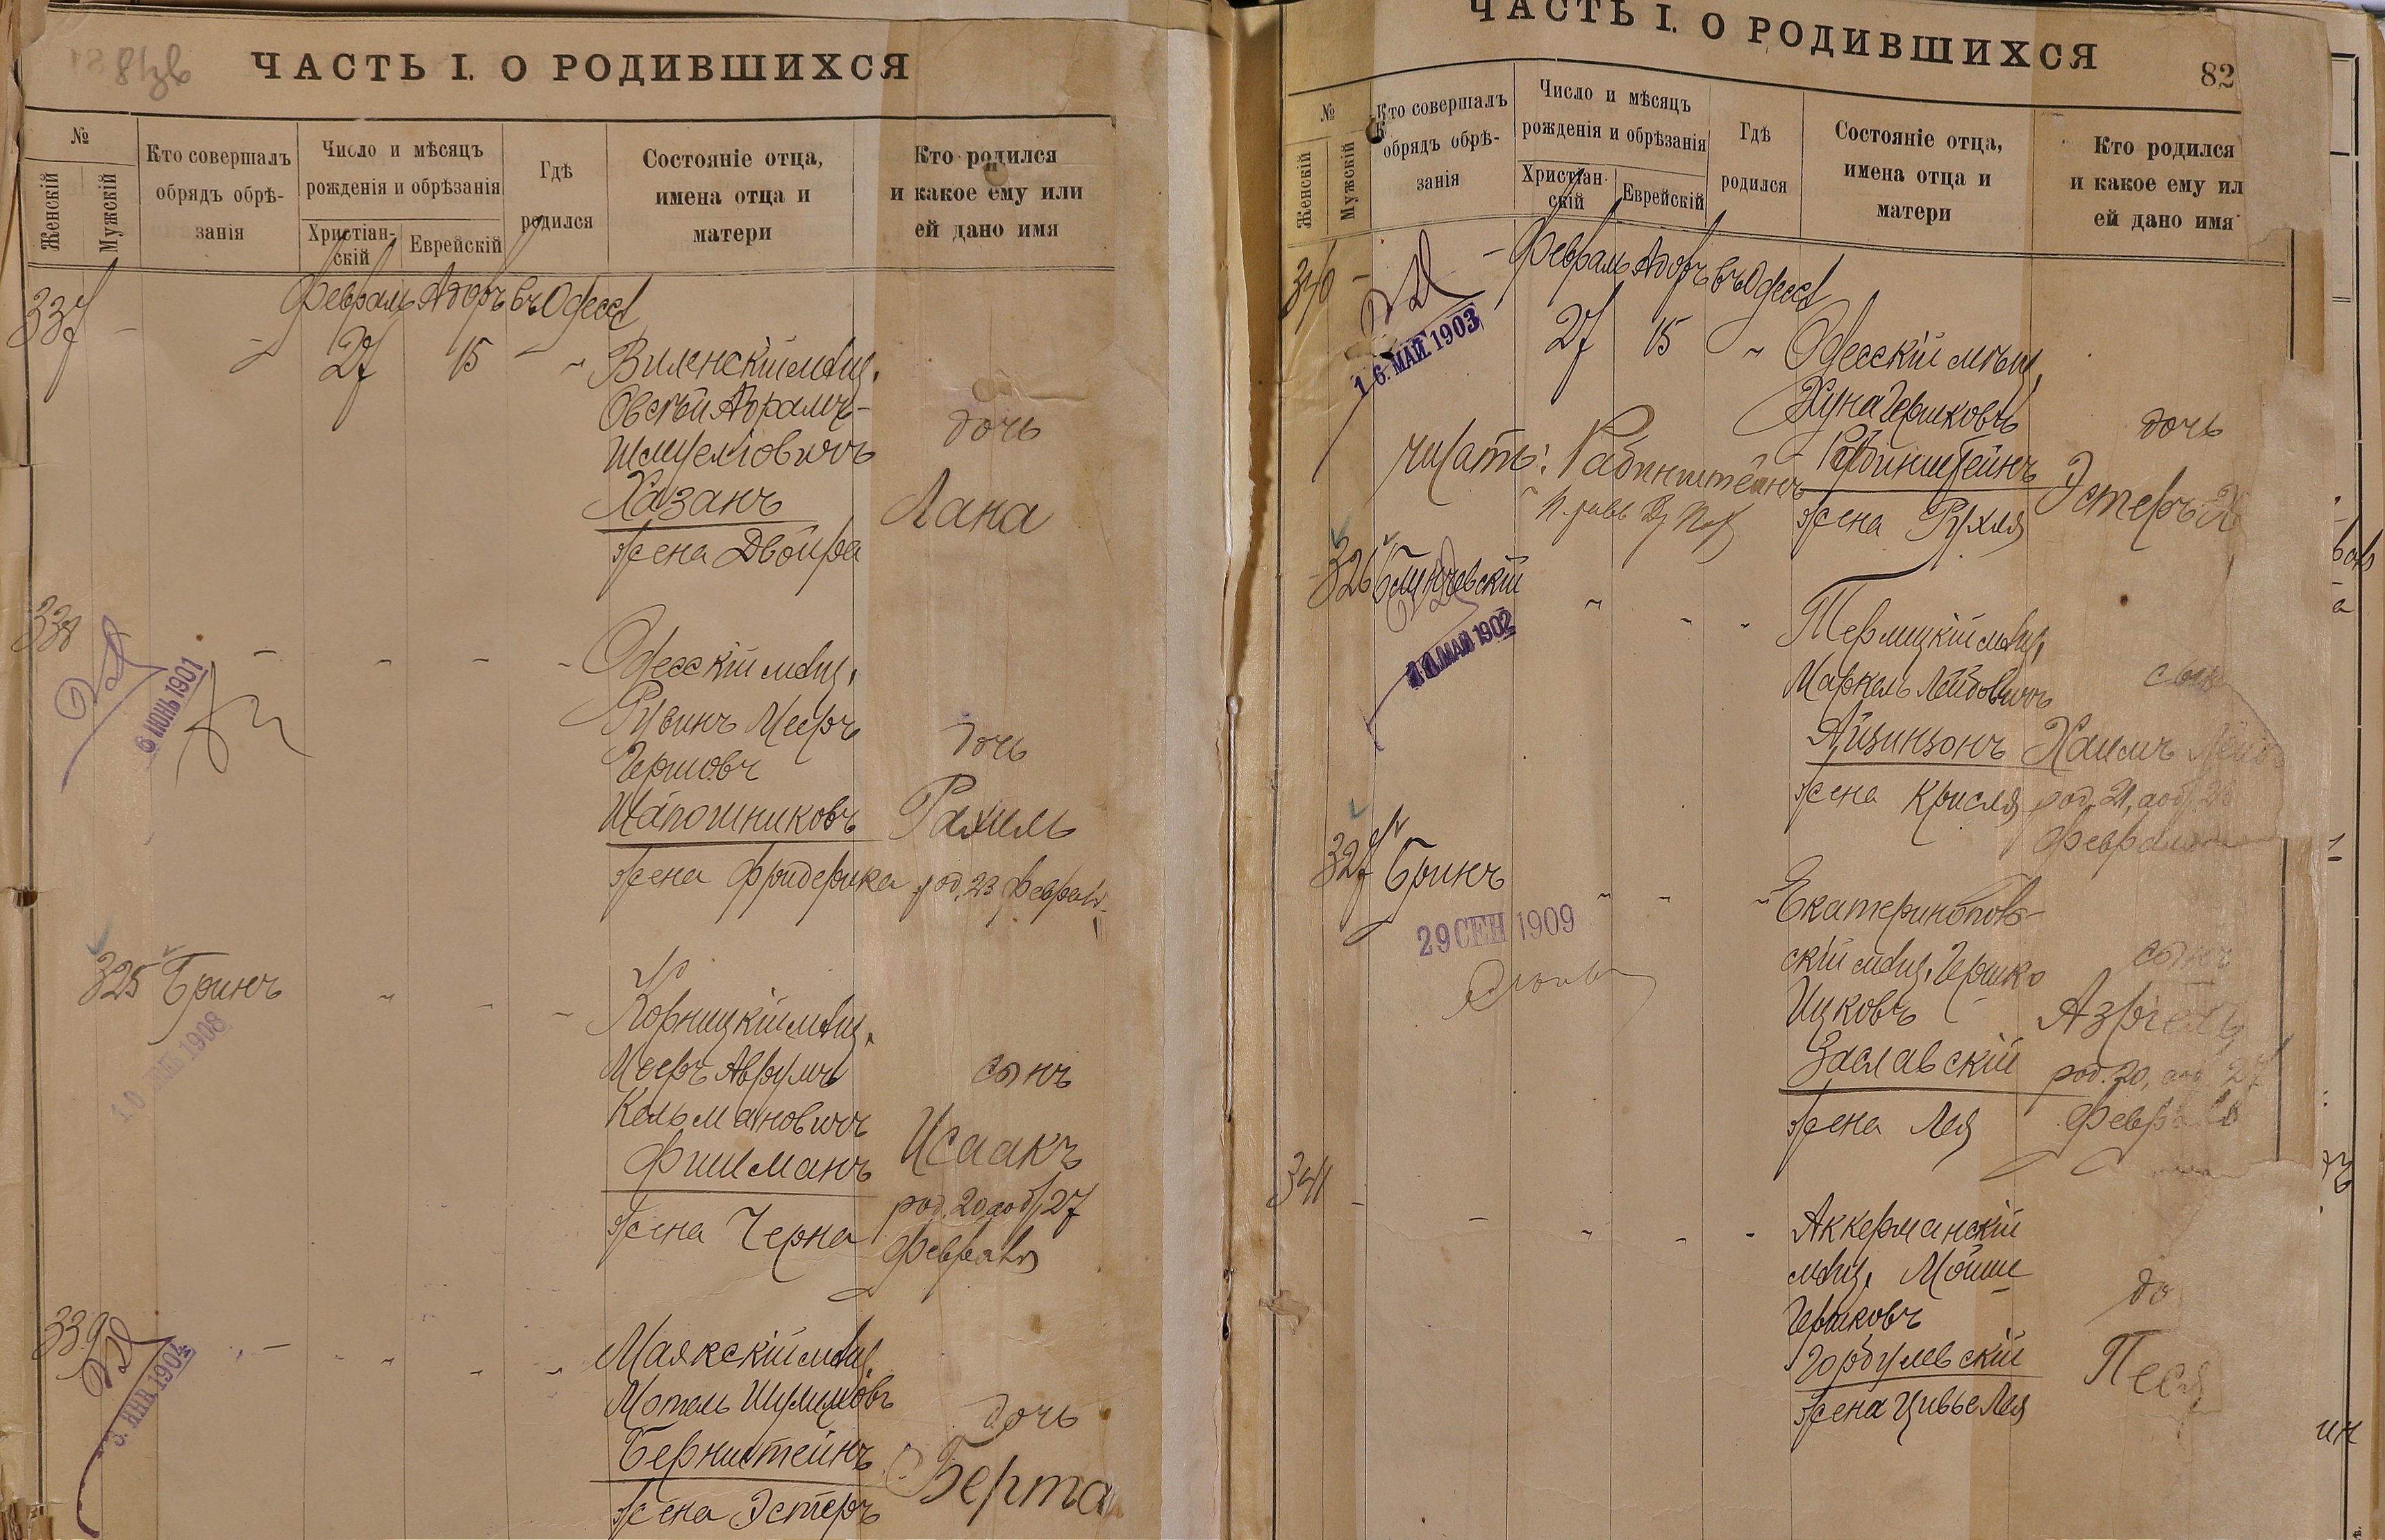 ЧАСТЬ I. О РОДИВШИХСЯ
№
Женскій
Мужскій
Кто совершалъ
обрядъ обрѣ-
занія
Число и мѣсяцъ
рожденія и обрѣзанія
Христіан-
скій
Еврейскій
Гдѣ
родился
Состояніе отца,
имена отца и
матери
Кто родился
и какое ему или
ей дано имя
Февраль Адоръ въ Одессѣ
337 - 27 15 Виленскій мѣщ.
Овсѣй Абрамъ-
Шмуеліовичъ
дочь
Хазанъ
Лана
жена Двойра
338
Одесскій мѣщ.
6 ИЮНЬ 1901
Рувинъ Мееръ
Гершовъ
дочь
Шапошниковъ
Рахиль
жена Фридерика род. 23 Феврал.
325 Бринъ
мѣщ.
1908
Мееръ Аврумъ
сынъ
Кельмановичъ
Исаакъ
Фишманъ
род. 20, а об. 27
жена Черна
Февраля
339
Маякскій мѣщ.
ЯНВ 1904
Мотель Шулимовъ
дочь
Бернштейнъ
Берта
жена Эстеръ
ЧАСТЬ I. О РОДИВШИХСЯ
82
№
Женскій
Мужскій
Кто совершалъ
обрядъ обрѣ-
занія
Число и мѣсяцъ
рожденія и обрѣзанія
Христіан-
скій
Еврейскій
Гдѣ
родился
Состояніе отца,
имена отца и
матери
Кто родился
и какое ему ил
ей дано имя
340 - Февраль Адоръ въ Одессѣ
27 15 Одесскій мѣщ.
16. МАЙ 1903
Хуна Гершковъ
дочь
читать: Рабинштейнъ
Эстеръ Х
жена Рухля
326
МАЙ 1902
мѣщ.
Маркель Лейбовичъ
сынъ
Айзинзонъ
Хаимъ Лейб
жена Крисля род. 21, а об. 28
Февраля
327 Бринъ
29 СЕН 1909
Екатеринопол-
скій мѣщ. Гершко
сынъ
Ицковъ
Азріель
Заславскій
род. 20, а об. 27
жена Лея
Февраля
341
Аккерманскій
мѣщ. Мойше
до
Гершковъ
Горбулевскій
Песя
жена Цивье Лея